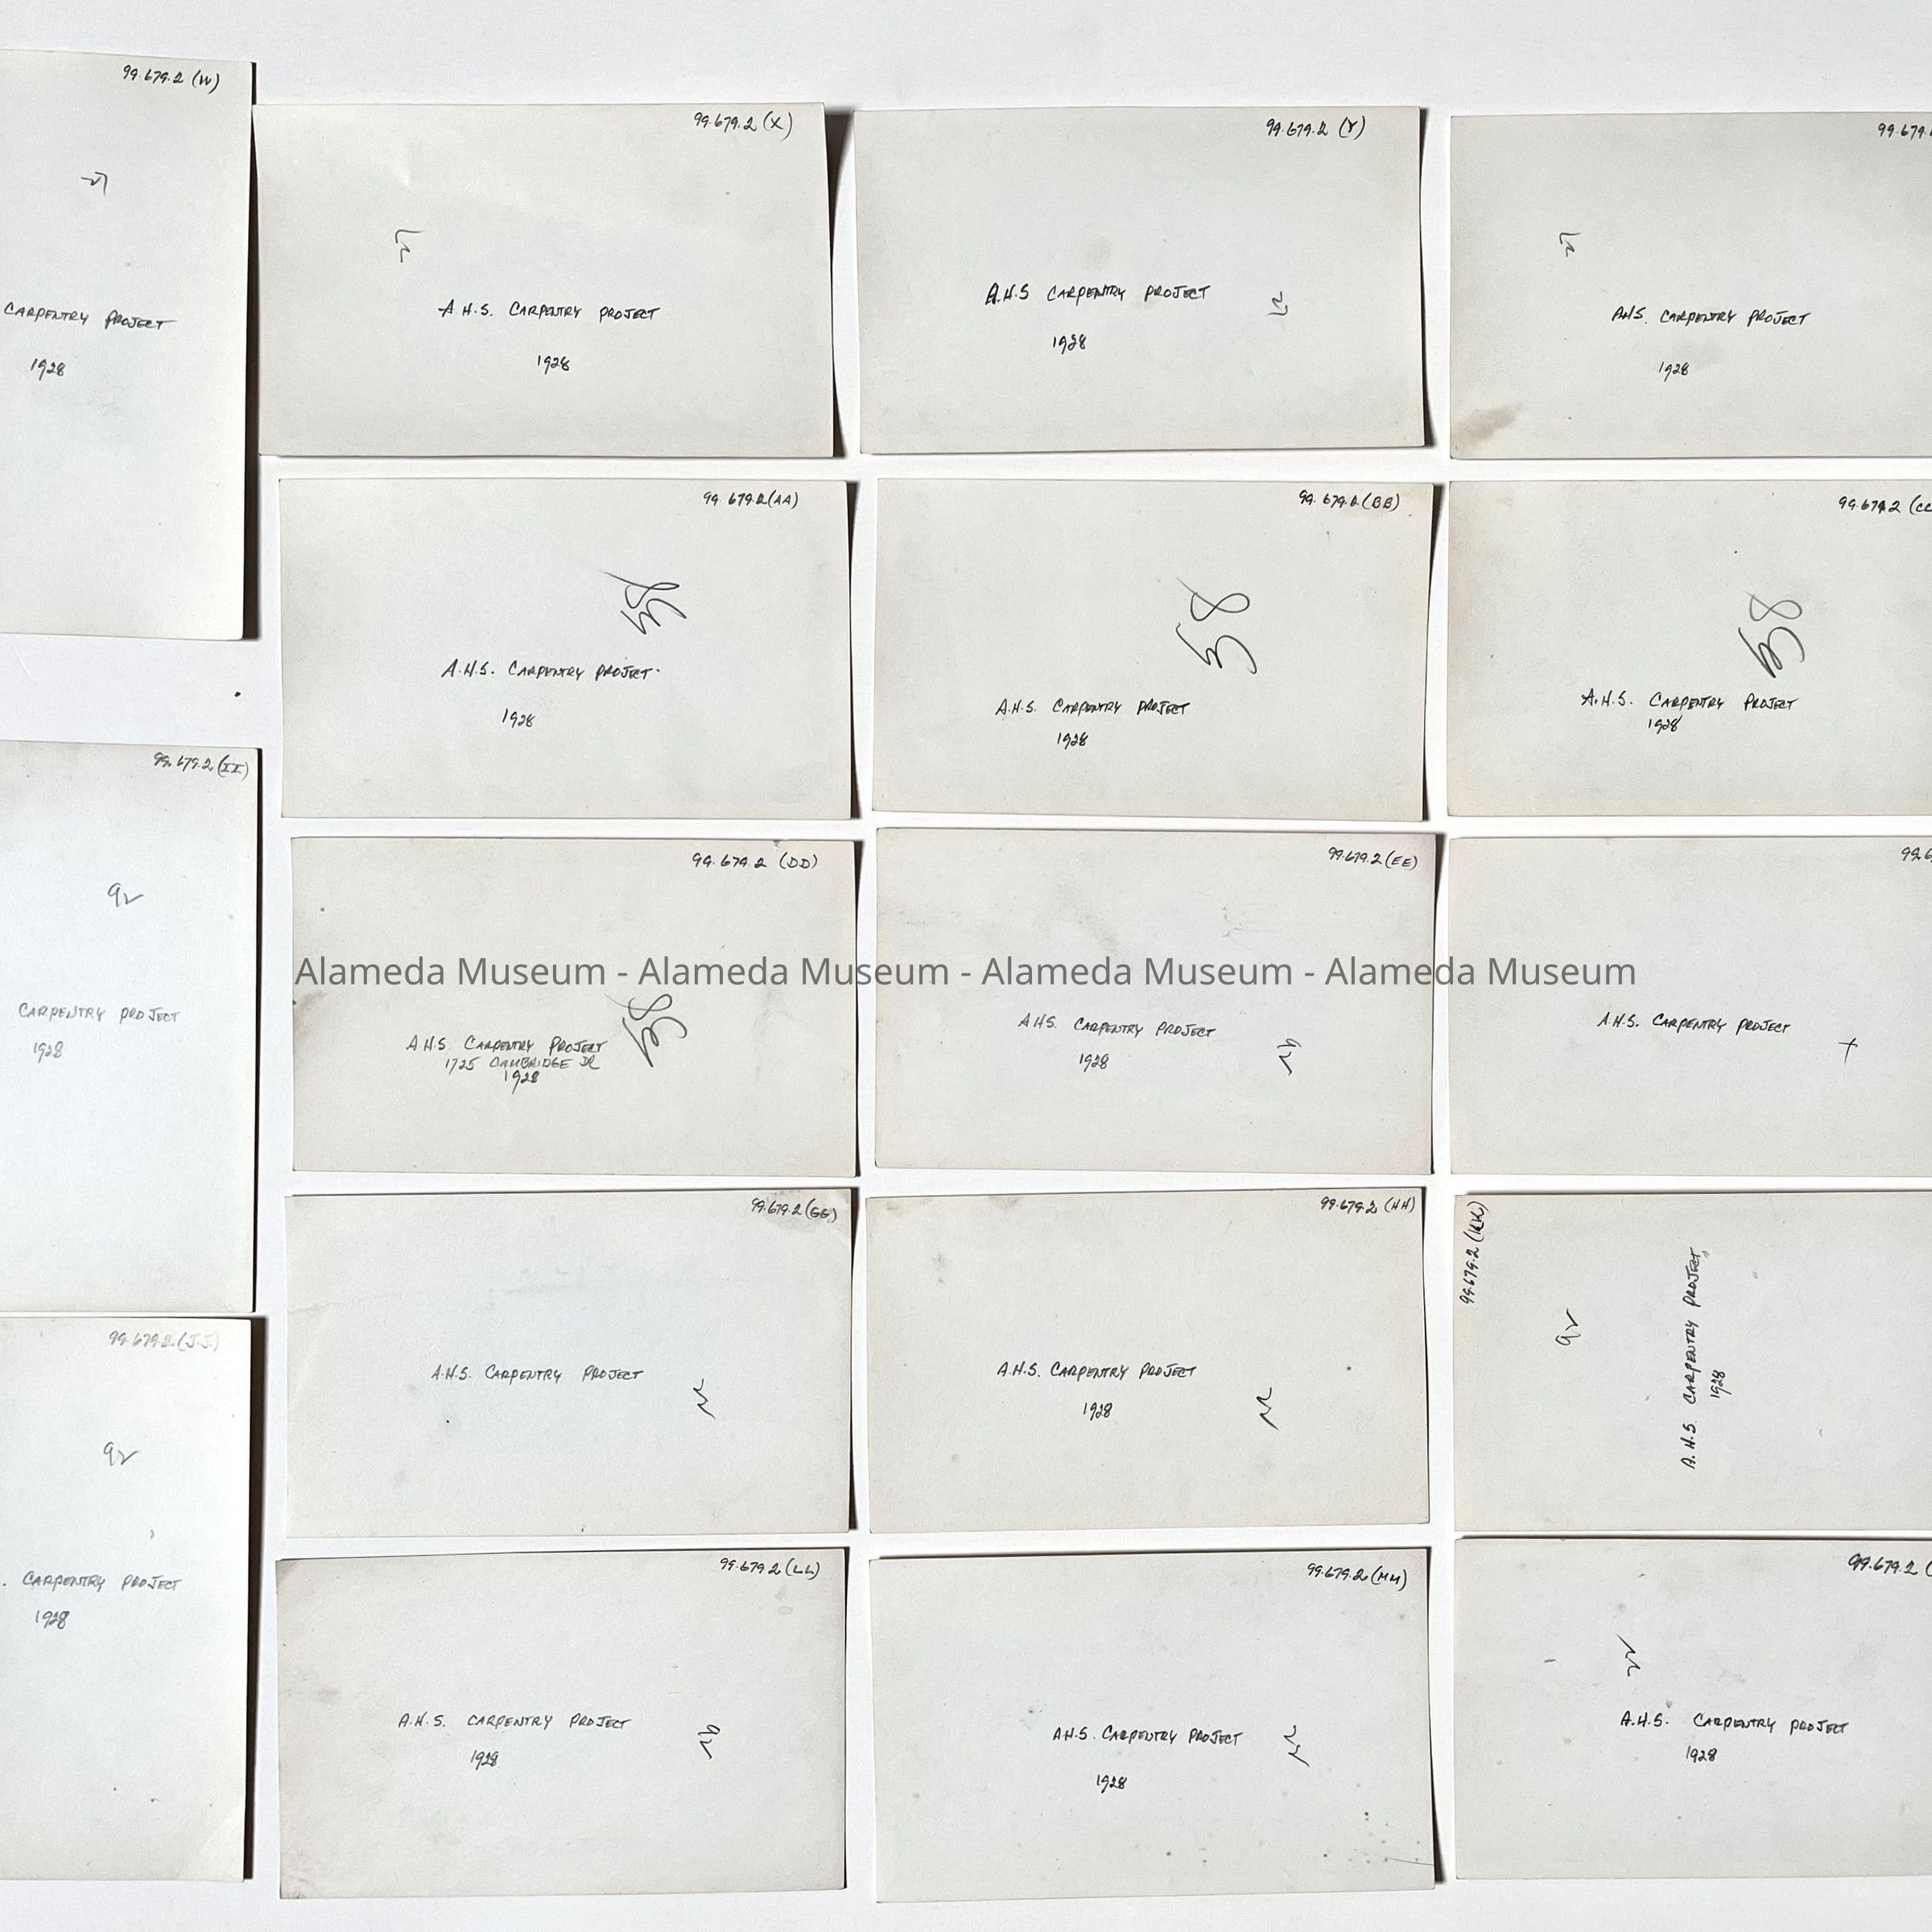 99.679.2 (W)
CARPENTRY PROJECT
1928
99.679.2 (X)
A.H.S. CARPENTRY PROJECT
1928
99.679.2 (Y)
A.H.S CARPENTRY PROJECT
1928
99.679.
A.H.S. CARPENTRY PROJECT
1928
99.679.2 (AA)
58
A.H.S. CARPENTRY PROJECT
1928
99.679.2 (BB)
58
A.H.S. CARPENTRY PROJECT
1928
99.679.2 (CC
58
A.H.S. CARPENTRY PROJECT
1928
99.679.2 (II)
92
CARPENTRY PROJECT
1928
99.679.2 (DD)
58
A.H.S. CARPENTRY PROJECT
1725 CAMBRIDGE DR
1928
99.679.2 (EE)
A.H.S. CARPENTRY PROJECT
1928
99.6
A.H.S. CARPENTRY PROJECT
Alameda Museum - Alameda Museum - Alameda Museum - Alameda Museum
99.679.2 (GG)
A.H.S. CARPENTRY PROJECT
99.679.2 (HH)
A.H.S. CARPENTRY PROJECT
1928
99.679.2 (KK)
92
A.H.S. CARPENTRY PROJECT
1928
99.679.2 (J.J.)
92
. CARPENTRY PROJECT
1928
99.679.2 (LL)
A.H.S. CARPENTRY PROJECT
92
1928
99.679.2 (MM)
A.H.S. CARPENTRY PROJECT
1928
99.679.2 (
A.H.S. CARPENTRY PROJECT
1928